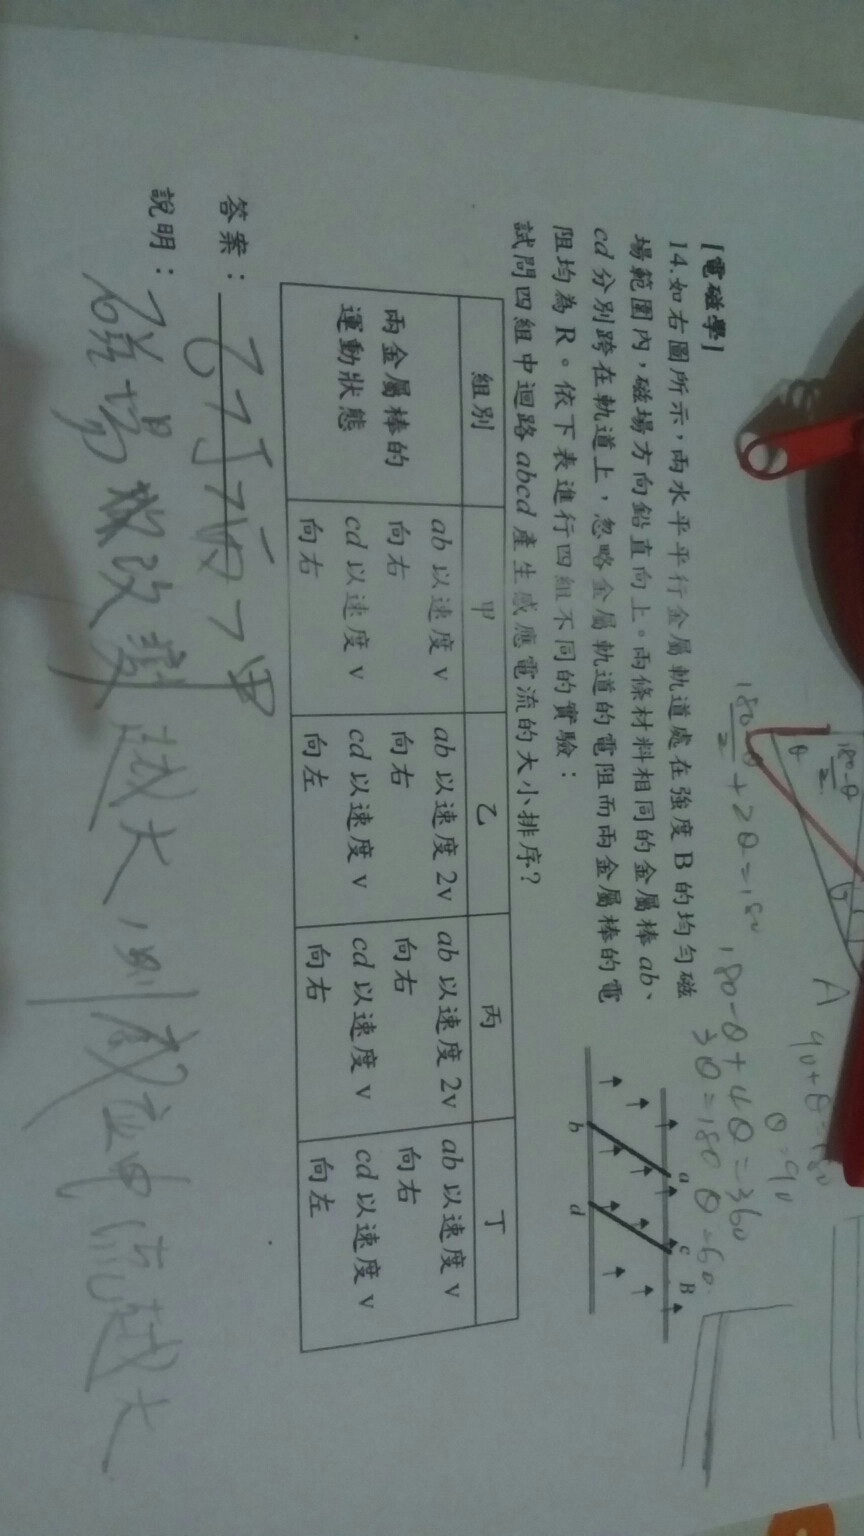 [電磁學]
14.如右圖所示，兩水平平行金屬軌道處在強度 B 的均勻磁
場範圍內，磁場方向鉛直向上。兩條材料相同的金屬棒 ab、
cd 分別跨在軌道上，忽略金屬軌道的電阻而兩金屬棒的電
阻均為 R。依下表進行四組不同的實驗：
試問四組中迴路 abcd 產生感應電流的大小排序？
a c B
b d
組別 甲 乙 丙 丁
兩金屬棒的
運動狀態
ab 以速度 v
向右
cd 以速度 v
向右
ab 以速度 2v
向右
cd 以速度 v
向左
ab 以速度 2v
向右
cd 以速度 v
向右
ab 以速度 v
向右
cd 以速度 v
向左
答案：乙>丁>丙>甲
說明：磁場改變越大，則感應電流越大
A
θ
180-θ
2
180-θ+4θ=360
3θ=180 θ=60